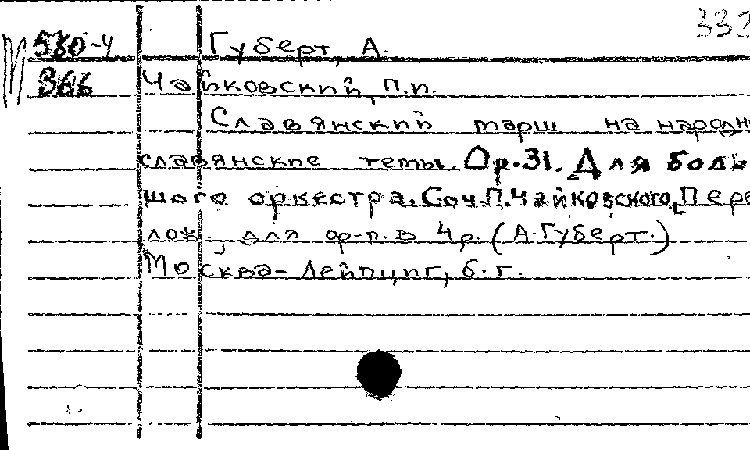 332
М 560-4 Губерт, А.
366 Чайковский, П.И.
Славянский марш на народн
славянские темы. Ор.31. Для боль
шого оркестра. Соч. П. Чайковского. Пере
лож. для ф-п. в 4р. (А. Губерт.)
Москва-Лейпциг, б.г.